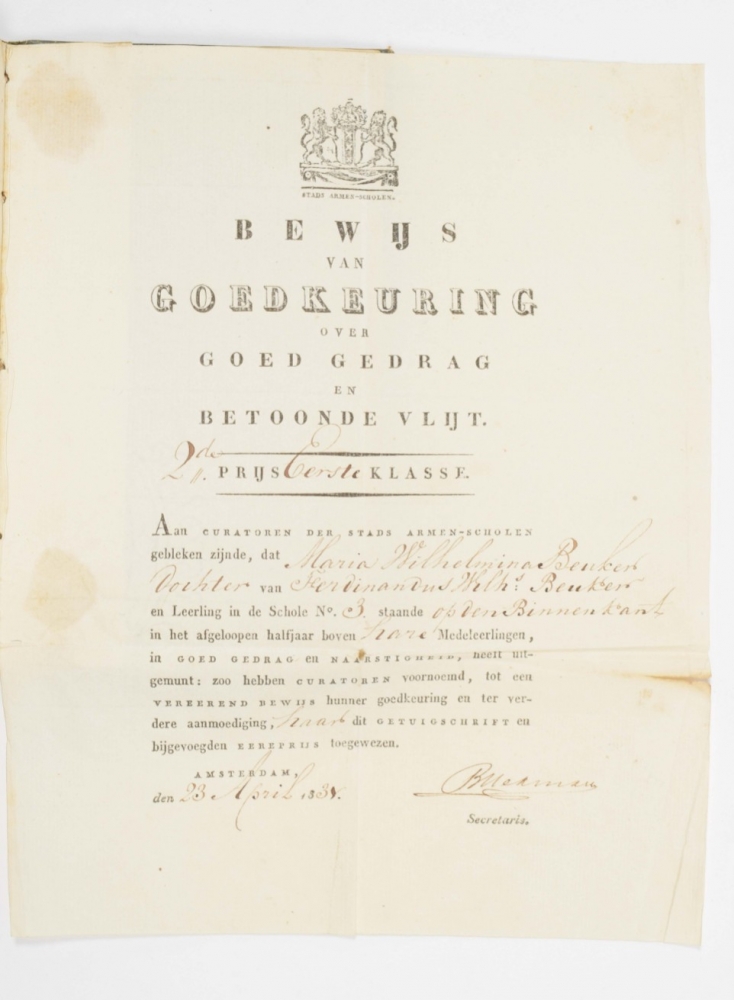 STADS ARMEN-SCHOLEN.
BEWIJS
VAN
GOEDKEURING
OVER
GOED GEDRAG
EN
BETOONDE VLIJT.
2de. PRIJS Eerste KLASSE.
Aan CURATOREN DER STADS ARMEN-SCHOLEN
gebleken zijnde, dat Maria Wilhelmina Beuker
Dochter van Ferdinandus Wilhs. Beuker
en Leerling in de Schole No. 3. staande op den Binnenkant
in het afgeloopen halfjaar boven hare Medeleerlingen,
in GOED GEDRAG en NAARSTIGHEID, heeft uit-
gemunt: zoo hebben CURATOREN voornoemd, tot een
VEREEREND BEWIJS hunner goedkeuring en ter ver-
dere aanmoediging, haar dit GETUIGSCHRIFT en
bijgevoegden EEREPRIJS toegewezen.
AMSTERDAM,
den 23 April 183
Secretaris.